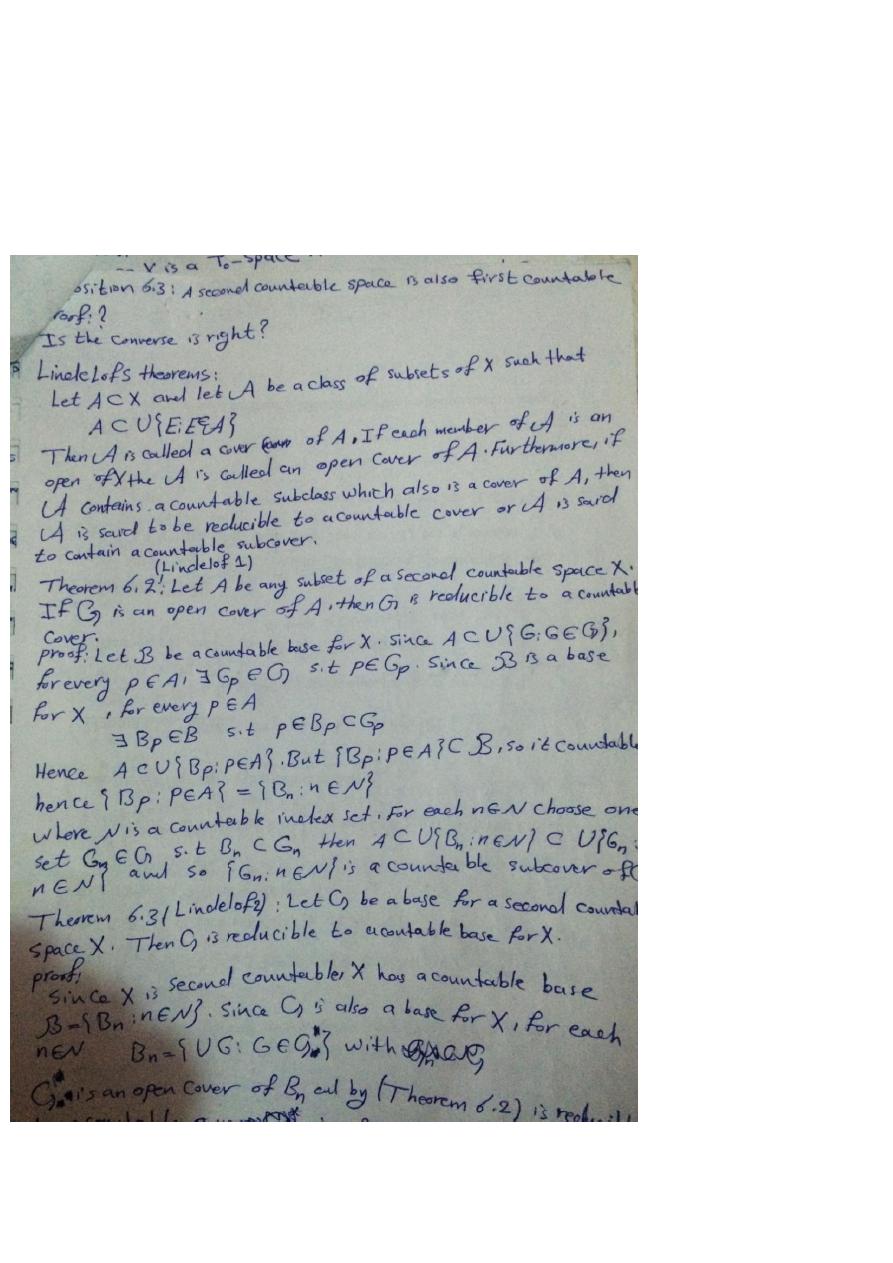 -- V is a T₀-space
osition 6.3: A second countable space is also first countable
roof: ?
Is the converse is right?
Lindelofs theorems:
Let A⊂X and let 𝒜 be a class of subsets of X such that
A⊂∪{E:E∈𝒜}
Then 𝒜 is called a cover of A, If each member of 𝒜 is an
open of X the 𝒜 is called an open cover of A. Furthermore, if
𝒜 contains a countable subclass which also is a cover of A, then
𝒜 is said to be reducible to a countable cover or 𝒜 is said
to contain a countable subcover.
(Lindelof 1)
Theorem 6.2: Let A be any subset of a second countable space X.
If G is an open cover of A, then G is reducible to a countabl
cover.
proof: Let ℬ be a countable base for X. since A⊂∪{G:G∈G},
for every p∈A, ∃ Gp∈G s.t p∈Gp. Since ℬ is a base
for X, for every p∈A
∃ Bp∈B s.t p∈Bp⊂Gp
Hence A⊂∪{Bp:p∈A}. But {Bp:p∈A}⊂ℬ, so it countable
hence {Bp: p∈A} = {Bn:n∈N}
where N is a countable index set. For each n∈N choose one
set Gn∈G s.t Bn⊂Gn then A⊂∪{Bn:n∈N}⊂∪{Gn:
n∈N} and so {Gn:n∈N} is a countable subcover of
Theorem 6.3 (Lindelof2): Let G be a base for a second counta
space X. Then G is reducible to a coutable base for X.
proof:
Since X is second countable, X has a countable base
ℬ={Bn:n∈N}. Since G is also a base for X, for each
n∈N Bn={∪G: G∈Gn*} with
Gn* is an open cover of Bn by (Theorem 6.2) is